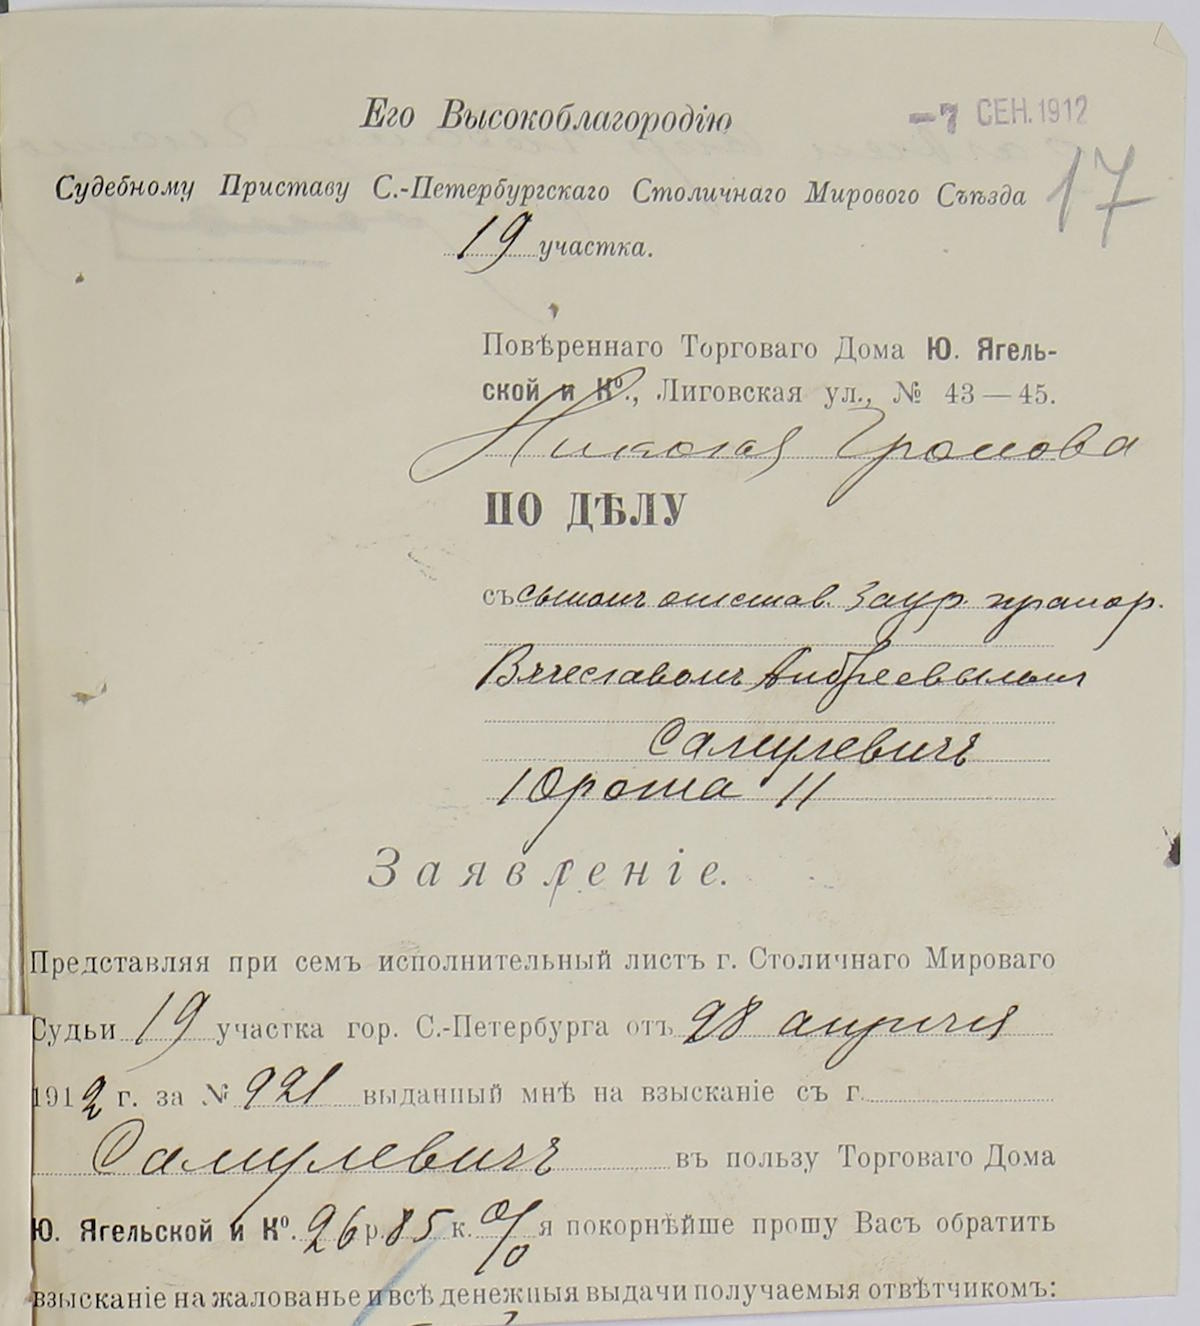 Его Высокоблагородію
-7 СЕН. 1912
17
Судебному Приставу С.-Петербургскаго Столичнаго Мирового Съѣзда
19 участка.
Повѣреннаго Торговаго Дома Ю. Ягель-
ской и Кº., Лиговская ул., № 43—45.
Николая Громова
ПО ДѢЛУ
съ сыномъ отстав. Заур прапор.
Вячеславомъ Андреевымъ
Самулевичъ
11
Заявленіе.
Представляя при семъ исполнительный листъ г. Столичнаго Мироваго
Судьи 19 участка гор. С.-Петербурга отъ 28 апрѣля
1912 г. за № 921 выданный мнѣ на взысканіе съ г.
Самулевичъ въ пользу Торговаго Дома
Ю. Ягельской и Кº. 26 р. 85 к. % я покорнѣйше прошу Васъ обратить
взысканіе на жалованье и всѣ денежныя выдачи получаемыя отвѣтчикомъ: